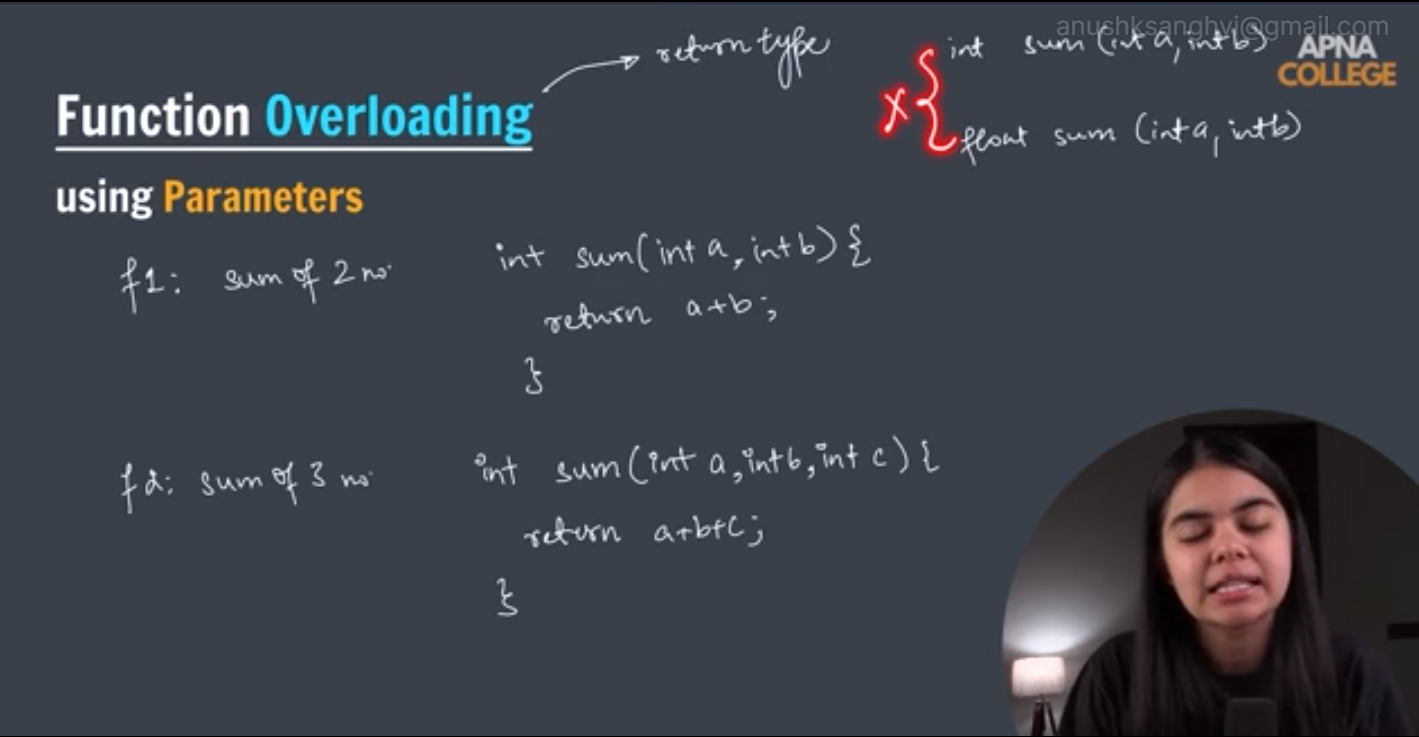 anushksanghvi@gmail.com
APNA
COLLEGE
Function Overloading
return type
X { int sum (int a, int b)
float sum (int a, int b)
using Parameters
f1: sum of 2 no.
int sum(int a, int b) {
return a+b;
}
f2: sum of 3 no.
int sum(int a, int b, int c) {
return a+b+c;
}